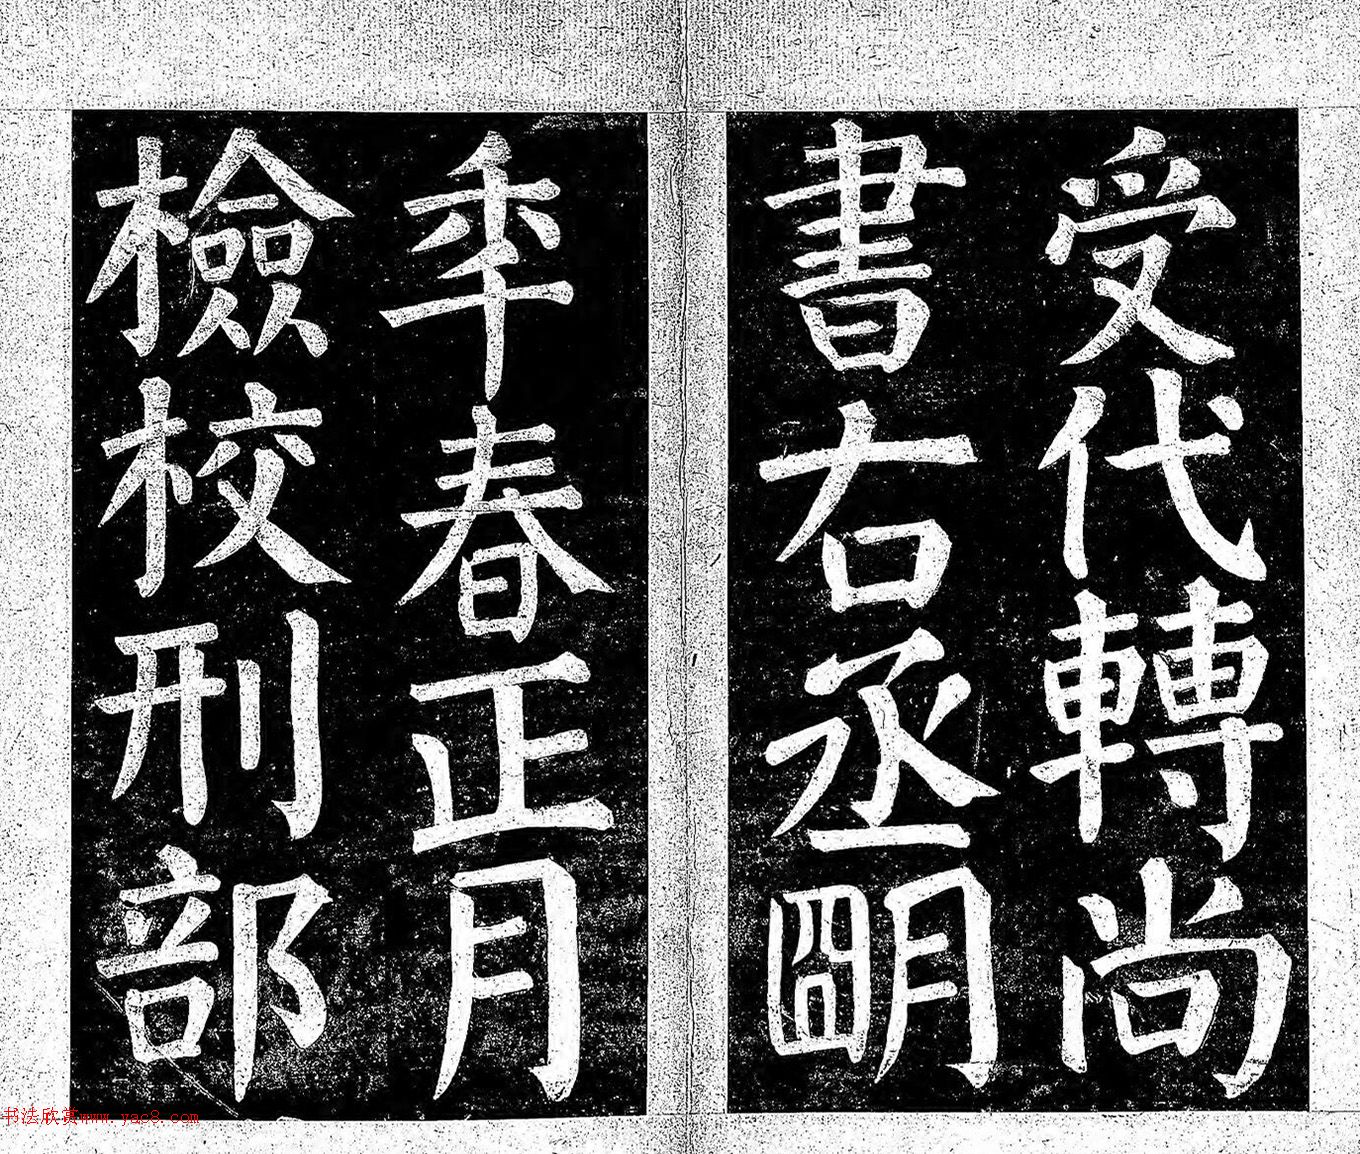 受代轉尚
書右丞明
年春正月
檢校刑部
书法欣赏www.yac8.com